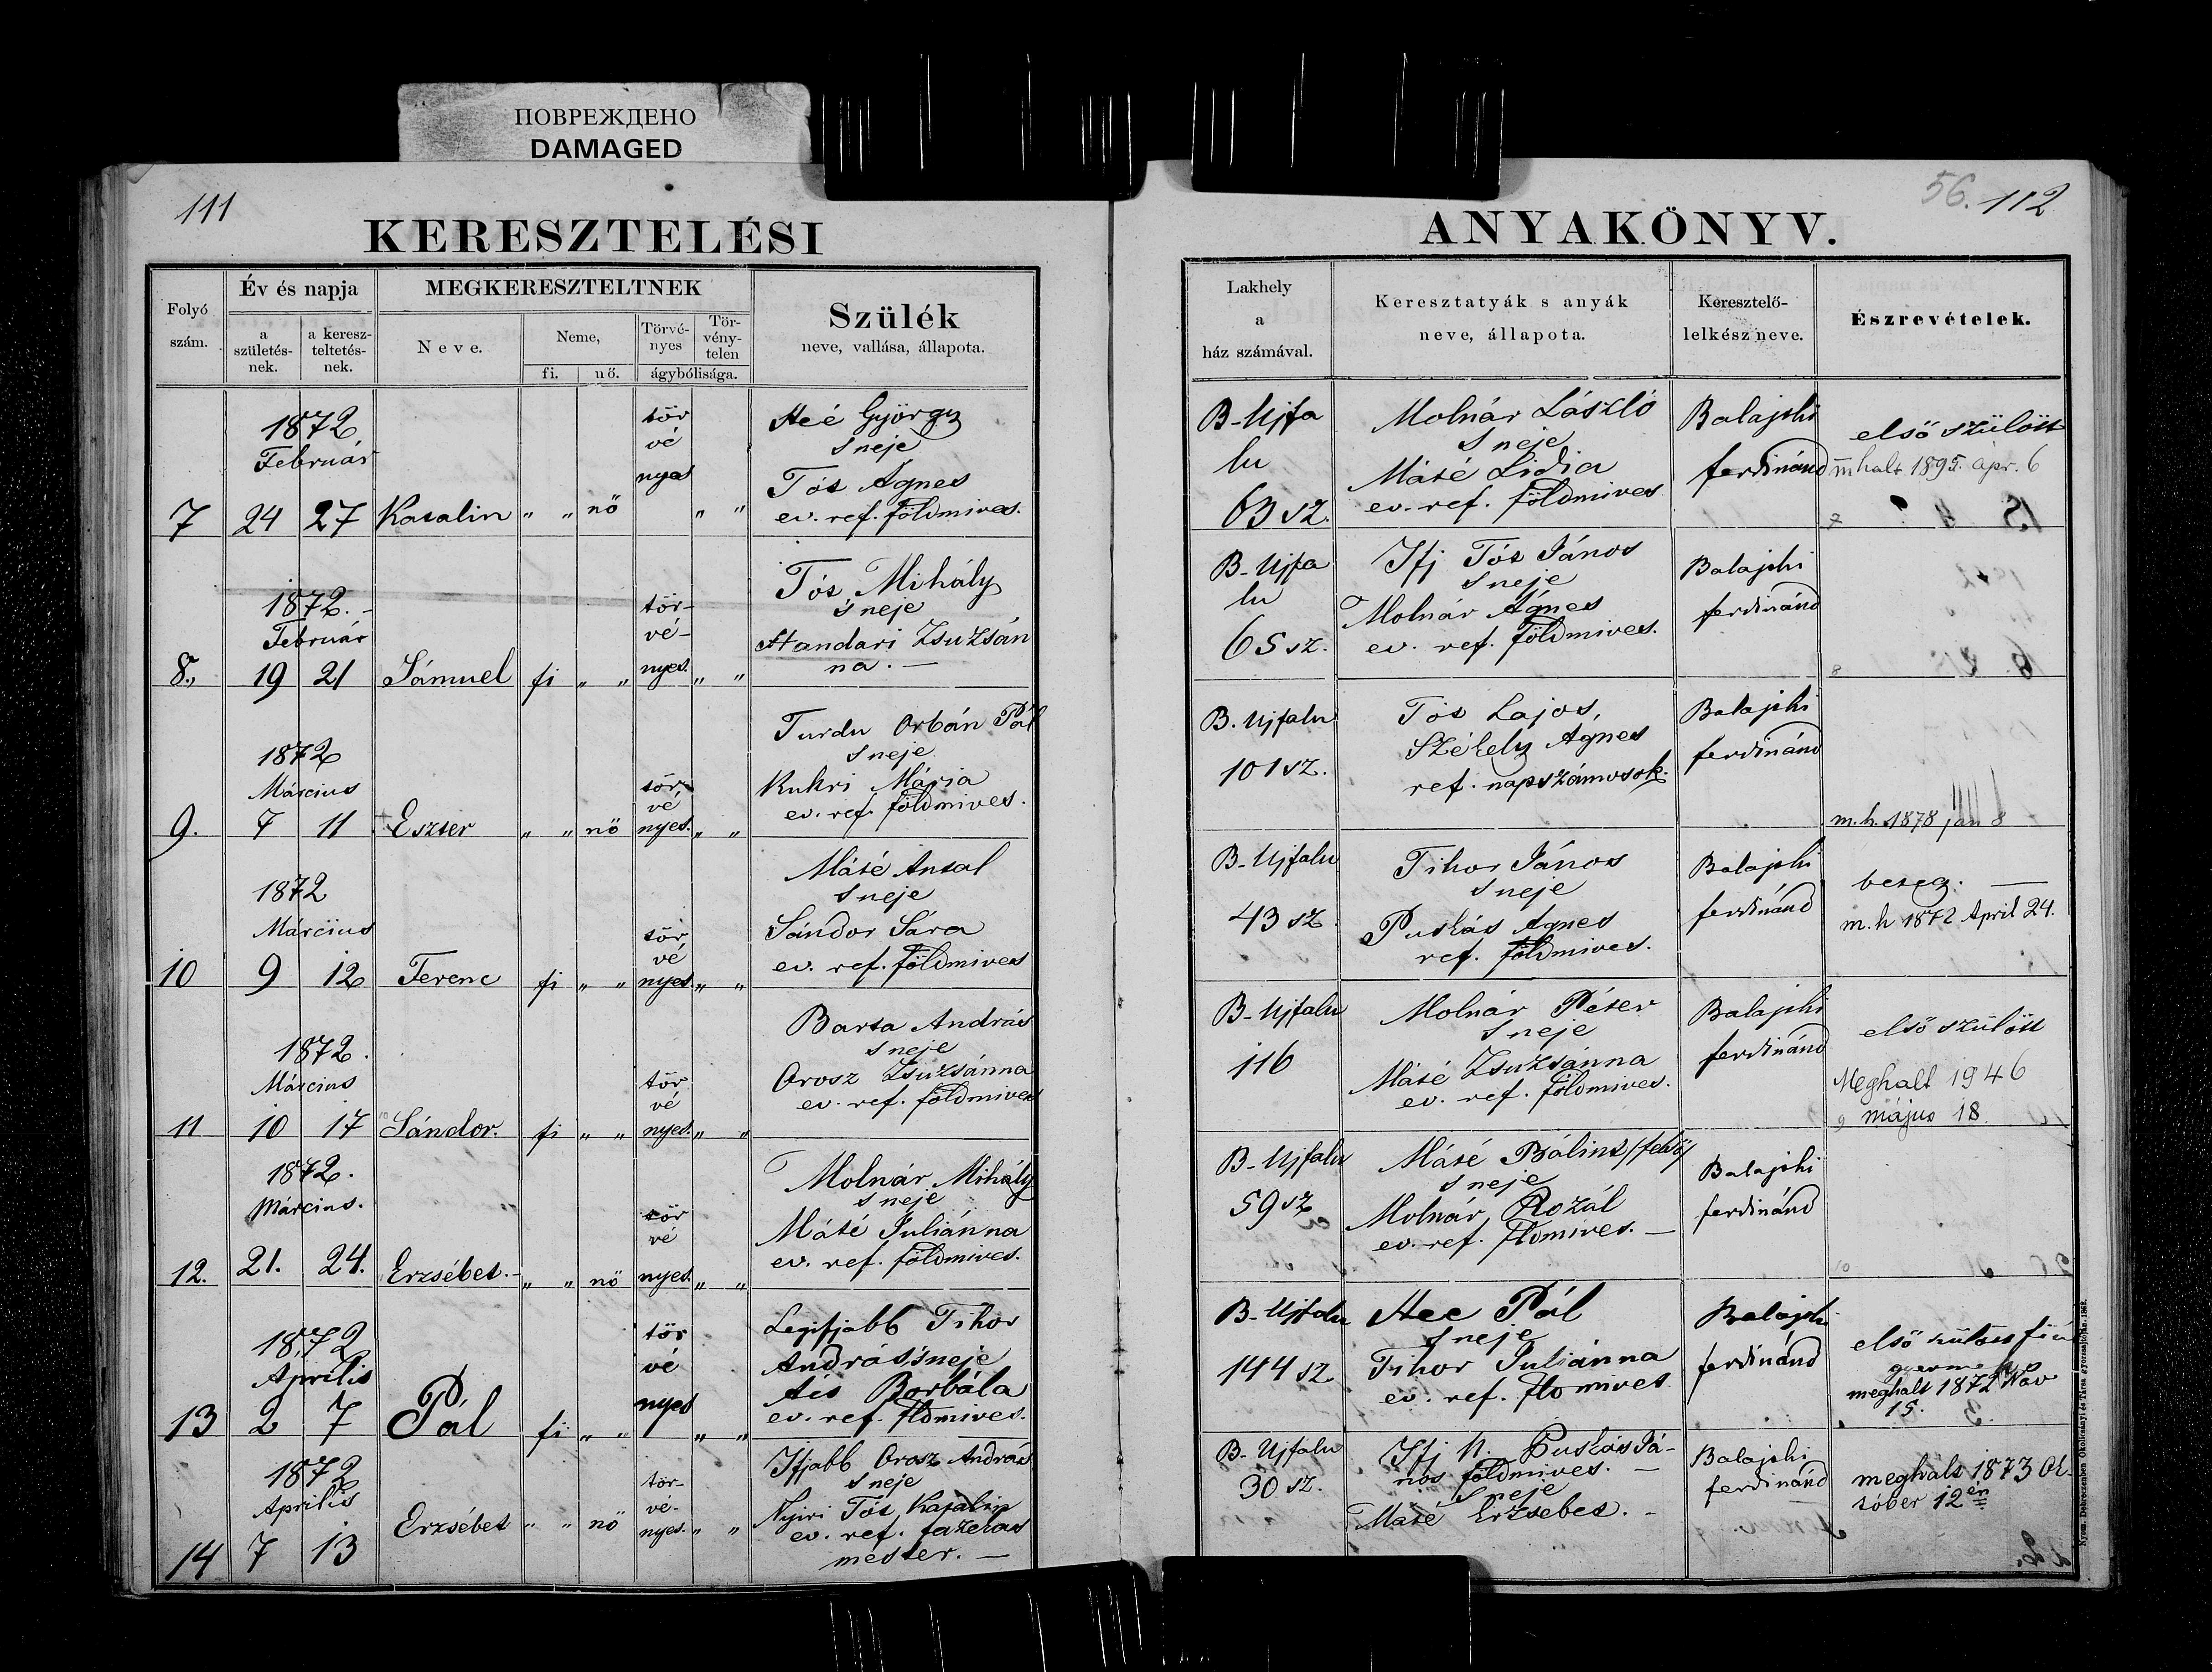 ПОВРЕЖДЕНО
DAMAGED
111
KERESZTELÉSI
Folyó szám.
Év és napja
a születés-nek.
a keresz-teltetés-nek.
MEGKERESZTELTNEK
Neve.
Neme,
fi.
nő.
Törvé-nyes
Tör-vény-telen
ágybólisága.
Szülék
neve, vallása, állapota.
1872
Február
7 24 27 Katalin „ „ nő
tör
vé
nyes
„ „
György
s neje
Tót Agnes
ev. ref. földmives.
1872.-
Február
8., 19 21 Sámuel fi „ „
tör-
vé-
nyes.
„ „
Tót Mihály
s neje
Zsuzsán
na.-
1872
Március
9. 7 11 Eszter „ „ nő
tör
vé
nyes.
„ „
Turdu Orbán Pál
s neje
Kukri Mária
ev. ref. földmives.
1872
Március
10 9 12 Ferenc fi „ „
tör
vé
nyes.
„ „
Máté Antal
s neje
Sándor Sára
ev. ref. földmives
1872.
Március
11 10 17 Sándor. fi „ „
tör
vé
nyes.
„ „
Barta András
s neje
Orosz Zsuzsánna
ev. ref. földmives
1872.
Március.
12. 21. 24. Erzsébet.- „ „ nő
tör
vé
nyes.
„ „
Molnár Mihály
s neje
Máté Juliánna
ev. ref. földmives.
1872
Április
13 2 7 Pál fi „ „
tör
vé
nyes
„ „
Legifjabb Tihor
András s neje
Borbála
ev. ref. fldmives.
1872
Április
14 7 13 Erzsébet „ „ nő
tör-
vé-
nyes.
„ „
Ifjabb Orosz András
s neje
Nyiri Tót Katalin
ev. ref. fazekas
mester.-
56. 112
ANYAKÖNYV.
Lakhely
a
ház számával.
Keresztatyák s anyák
neve, állapota.
Keresztelő-
lelkész neve.
Észrevételek.
B-Ujfa
lu
63 sz.
Molnár László
s neje
Máté Lidia
ev. ref. földmives
Balajthi
ferdinánd
első szülött
mhalt 1895. apr. 6
7
B-Ujfa
lu
65 sz.
Ifj Tót János
s neje
Molnár Ágnes
ev. ref. földmives.
Balajthi
ferdinánd
8
B. Ujfalu
101 sz.
Tót Lajos,
Székely Agnes
ref. napszámosok.
Balajthi
ferdinánd
m.h. 1878 jan 8
B-Ujfalu
43 sz.
Tihor János
s neje
Puskás Agnes
ref. földmives.
Balajthi
ferdinánd
beteg.
m.h 1872 April 24.
B-Ujfalu
116
Molnár Péter
s neje
Máté Zsuzsánna
ev. ref. földmives.
Balajthi
ferdinánd
első szülött
Meghalt 1946
9 május 18.
B-Ujfalu
59 sz
Máté Bálint /felső/
s neje
Molnár Rozál
ev. ref. fldmives.-
Balajthi
ferdinánd
10
B-Ujfalu
144 sz.
Pál
s neje
Tihor Juliánna
ev. ref. fldmives
Balajthi
ferdinánd
első szülött fiú
gyermek
meghalt 1872 Nov
15.
B-Ujfalu
30 sz.
Ifj N. Puskás Já-
nos földmives.-
s neje
Máté Erzsebet.-
Balajthi
ferdinánd
meghalt 1873 Ok-
tóber 12én
Nyom. Debreczenben Okolicsányi és Társa gyorssajtóján. 1862.